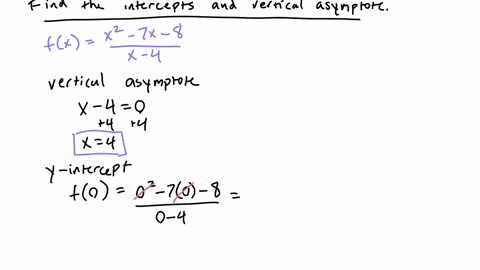 Find the intercepts and vertical asymptote.
f(x) = x² - 7x - 8 / x - 4
vertical asymptote
x - 4 = 0
+4 +4
x = 4
y-intercept
f(0) = 0² - 7(0) - 8 / 0 - 4 =